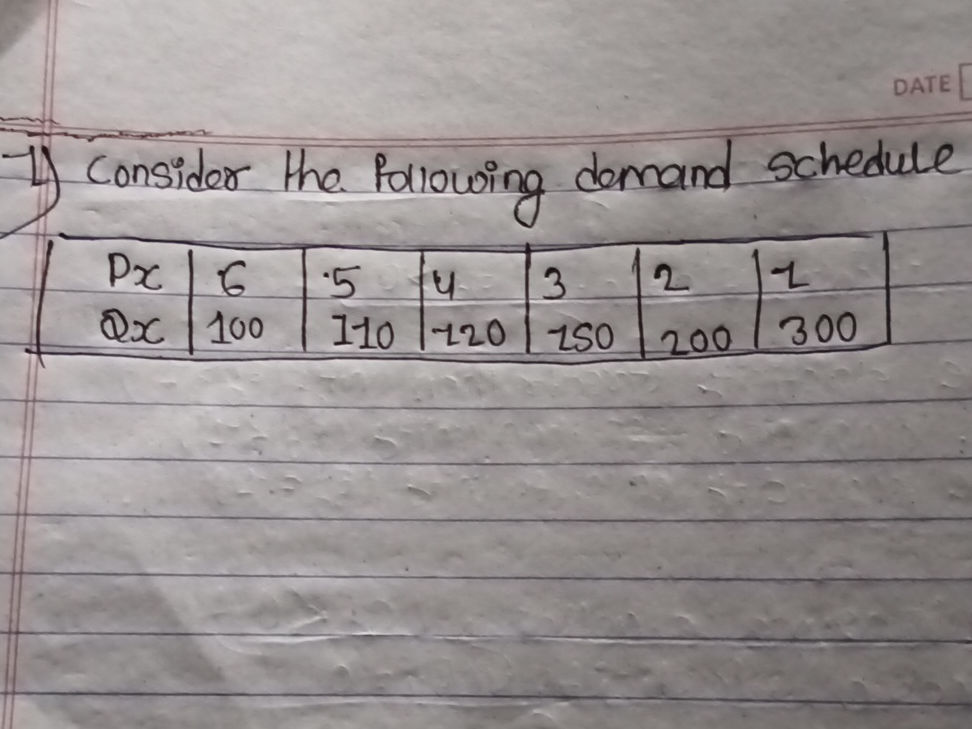 DATE
1) Consider the following demand schedule
Px 6 5 4 3 2 1
Qx 100 110 120 150 200 300